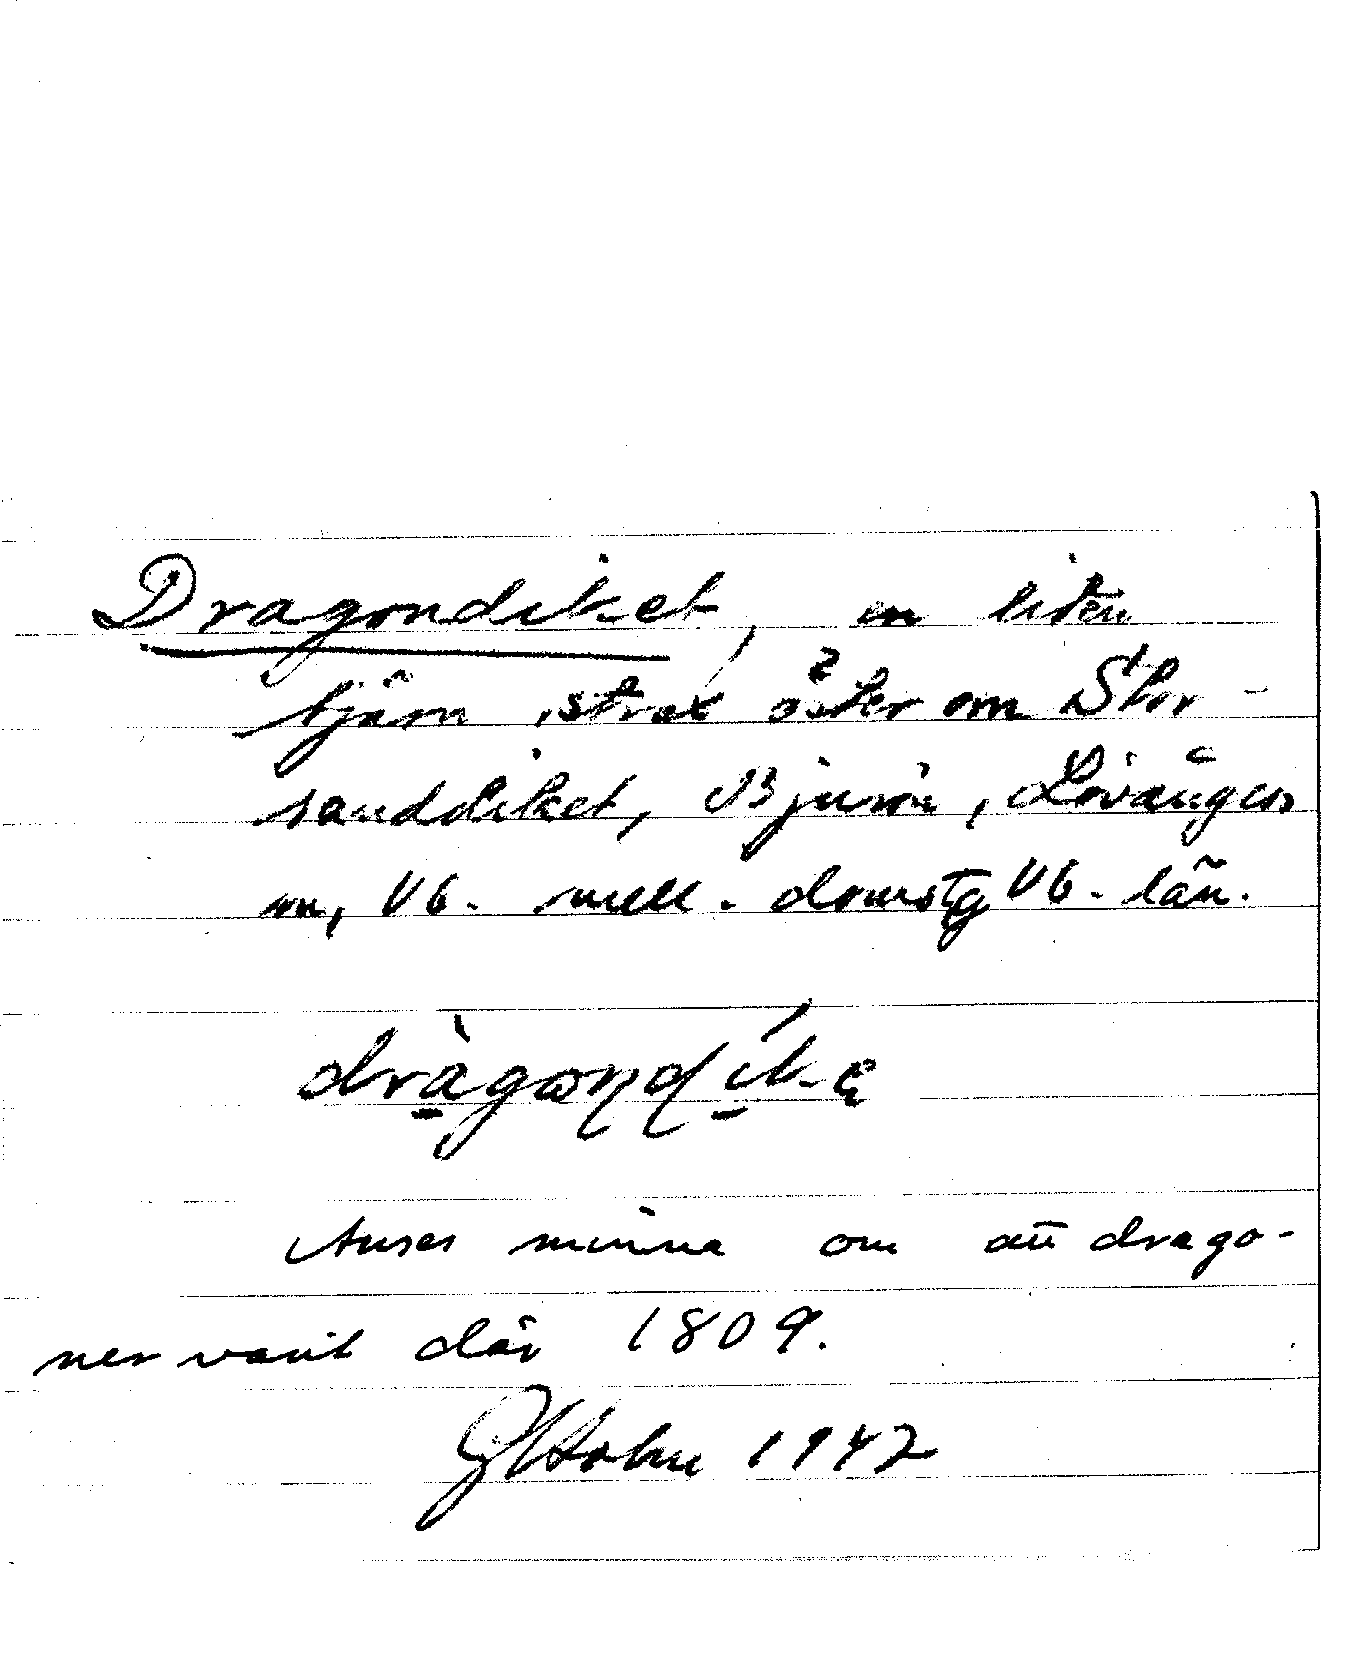 Dragondiket, en liten
tjärn strax öster om Stor-
sanddiket, Bjurön, Lövångers
sn, Vb. mell. domstg Vb. län.
dràgωṇḍík-ę
Anses minna om att drago-
ner varit där 1809.
Holm 1942